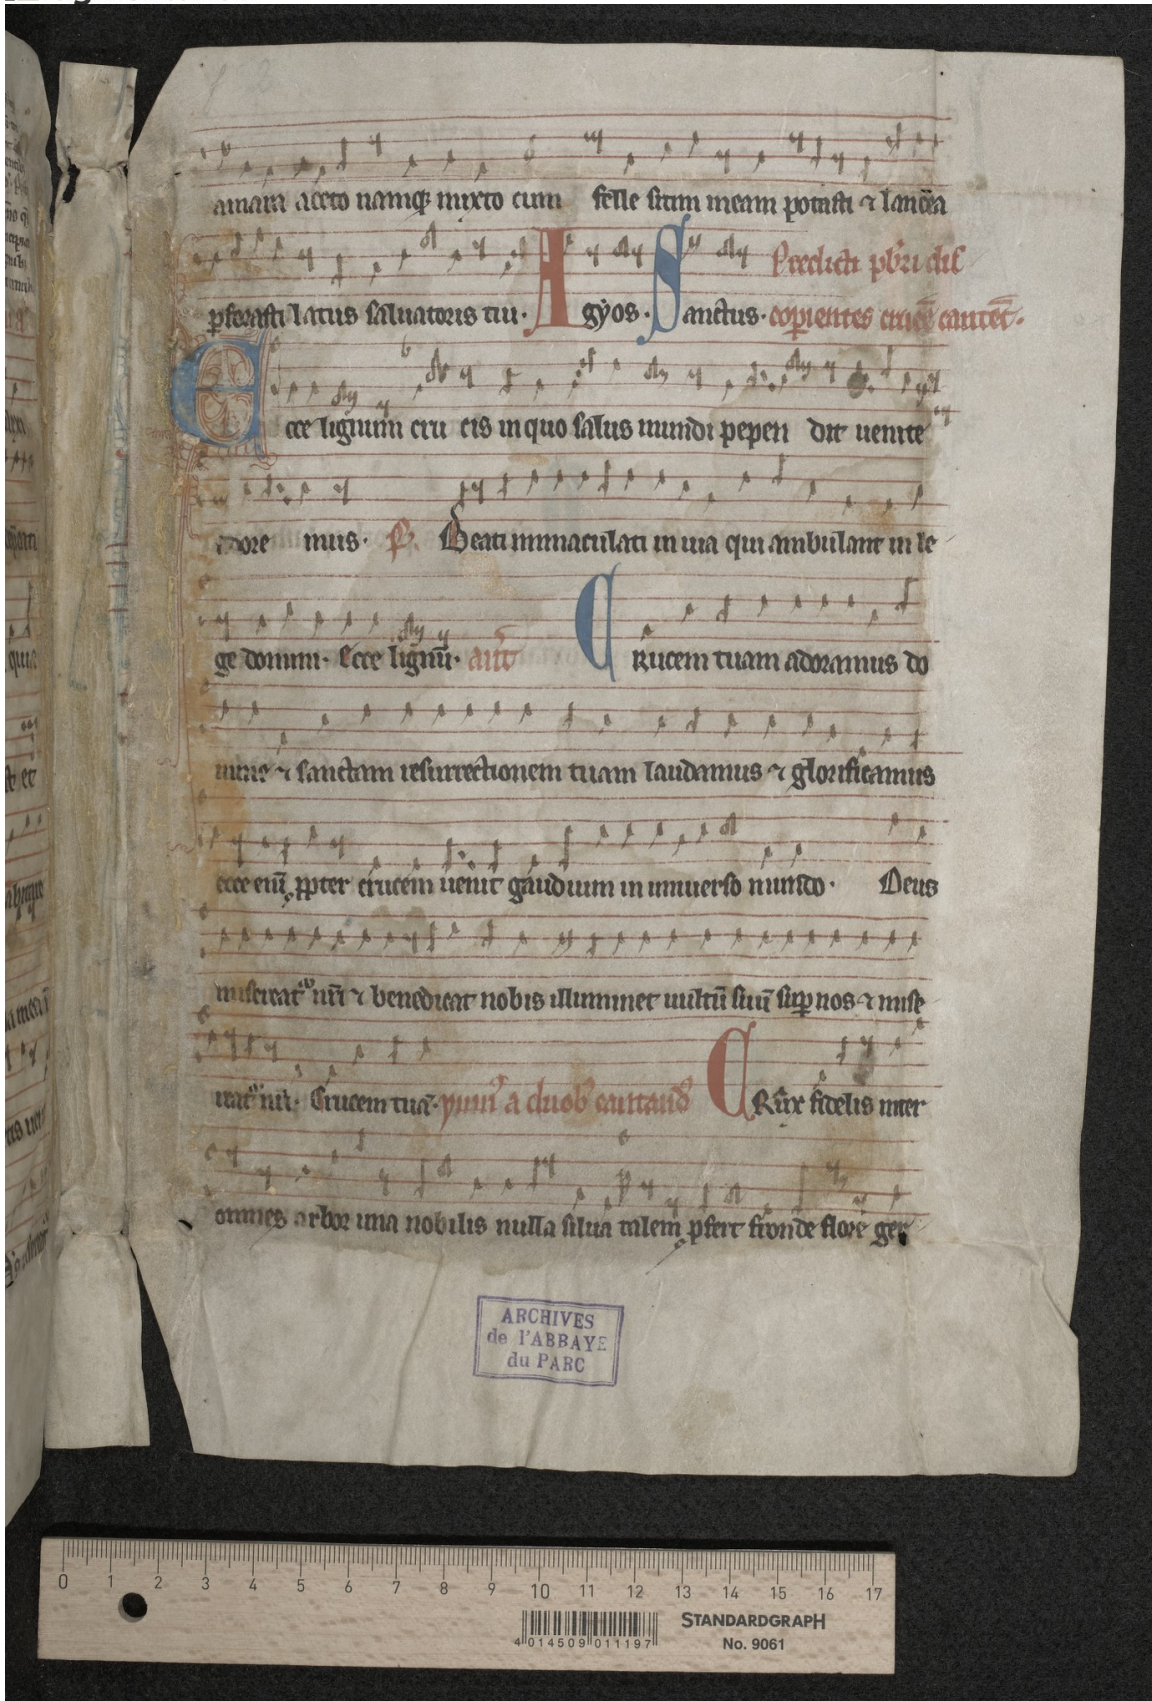 amara aceto namq; mixto cum felle sitim meam potasti ⁊ lancea
Predicti pbri dis
pforasti latus saluatoris tui. Agyos. Sanctus. coopientes crucē cantēt.
Ecce lignum cru cis in quo salus mundi pepen dit uenite
adore mus. ps. Beati inmaculati in uia qui ambulant in le
ge domini. Ecce lignū. ant Crucem tuam adoramus do
mine ⁊ sanctam resurrectionem tuam laudamus ⁊ glorificamus
ecce enī ppter crucem uenit gaudium in uniuerso mundo. Deus
misereat nri ⁊ benedicat nobis illuminet uultū suū sup nos ⁊ mise
reat nri. Crucem tuā. a duob cantand Crux fidelis inter
omnes arbor una nobilis nulla silua talem pfert fronde flore ger
ARCHIVES
de l'ABBAYE
du PARC
0 1 2 3 4 5 6 7 8 9 10 11 12 13 14 15 16 17
4 014509 011197
STANDARDGRAPH
No. 9061